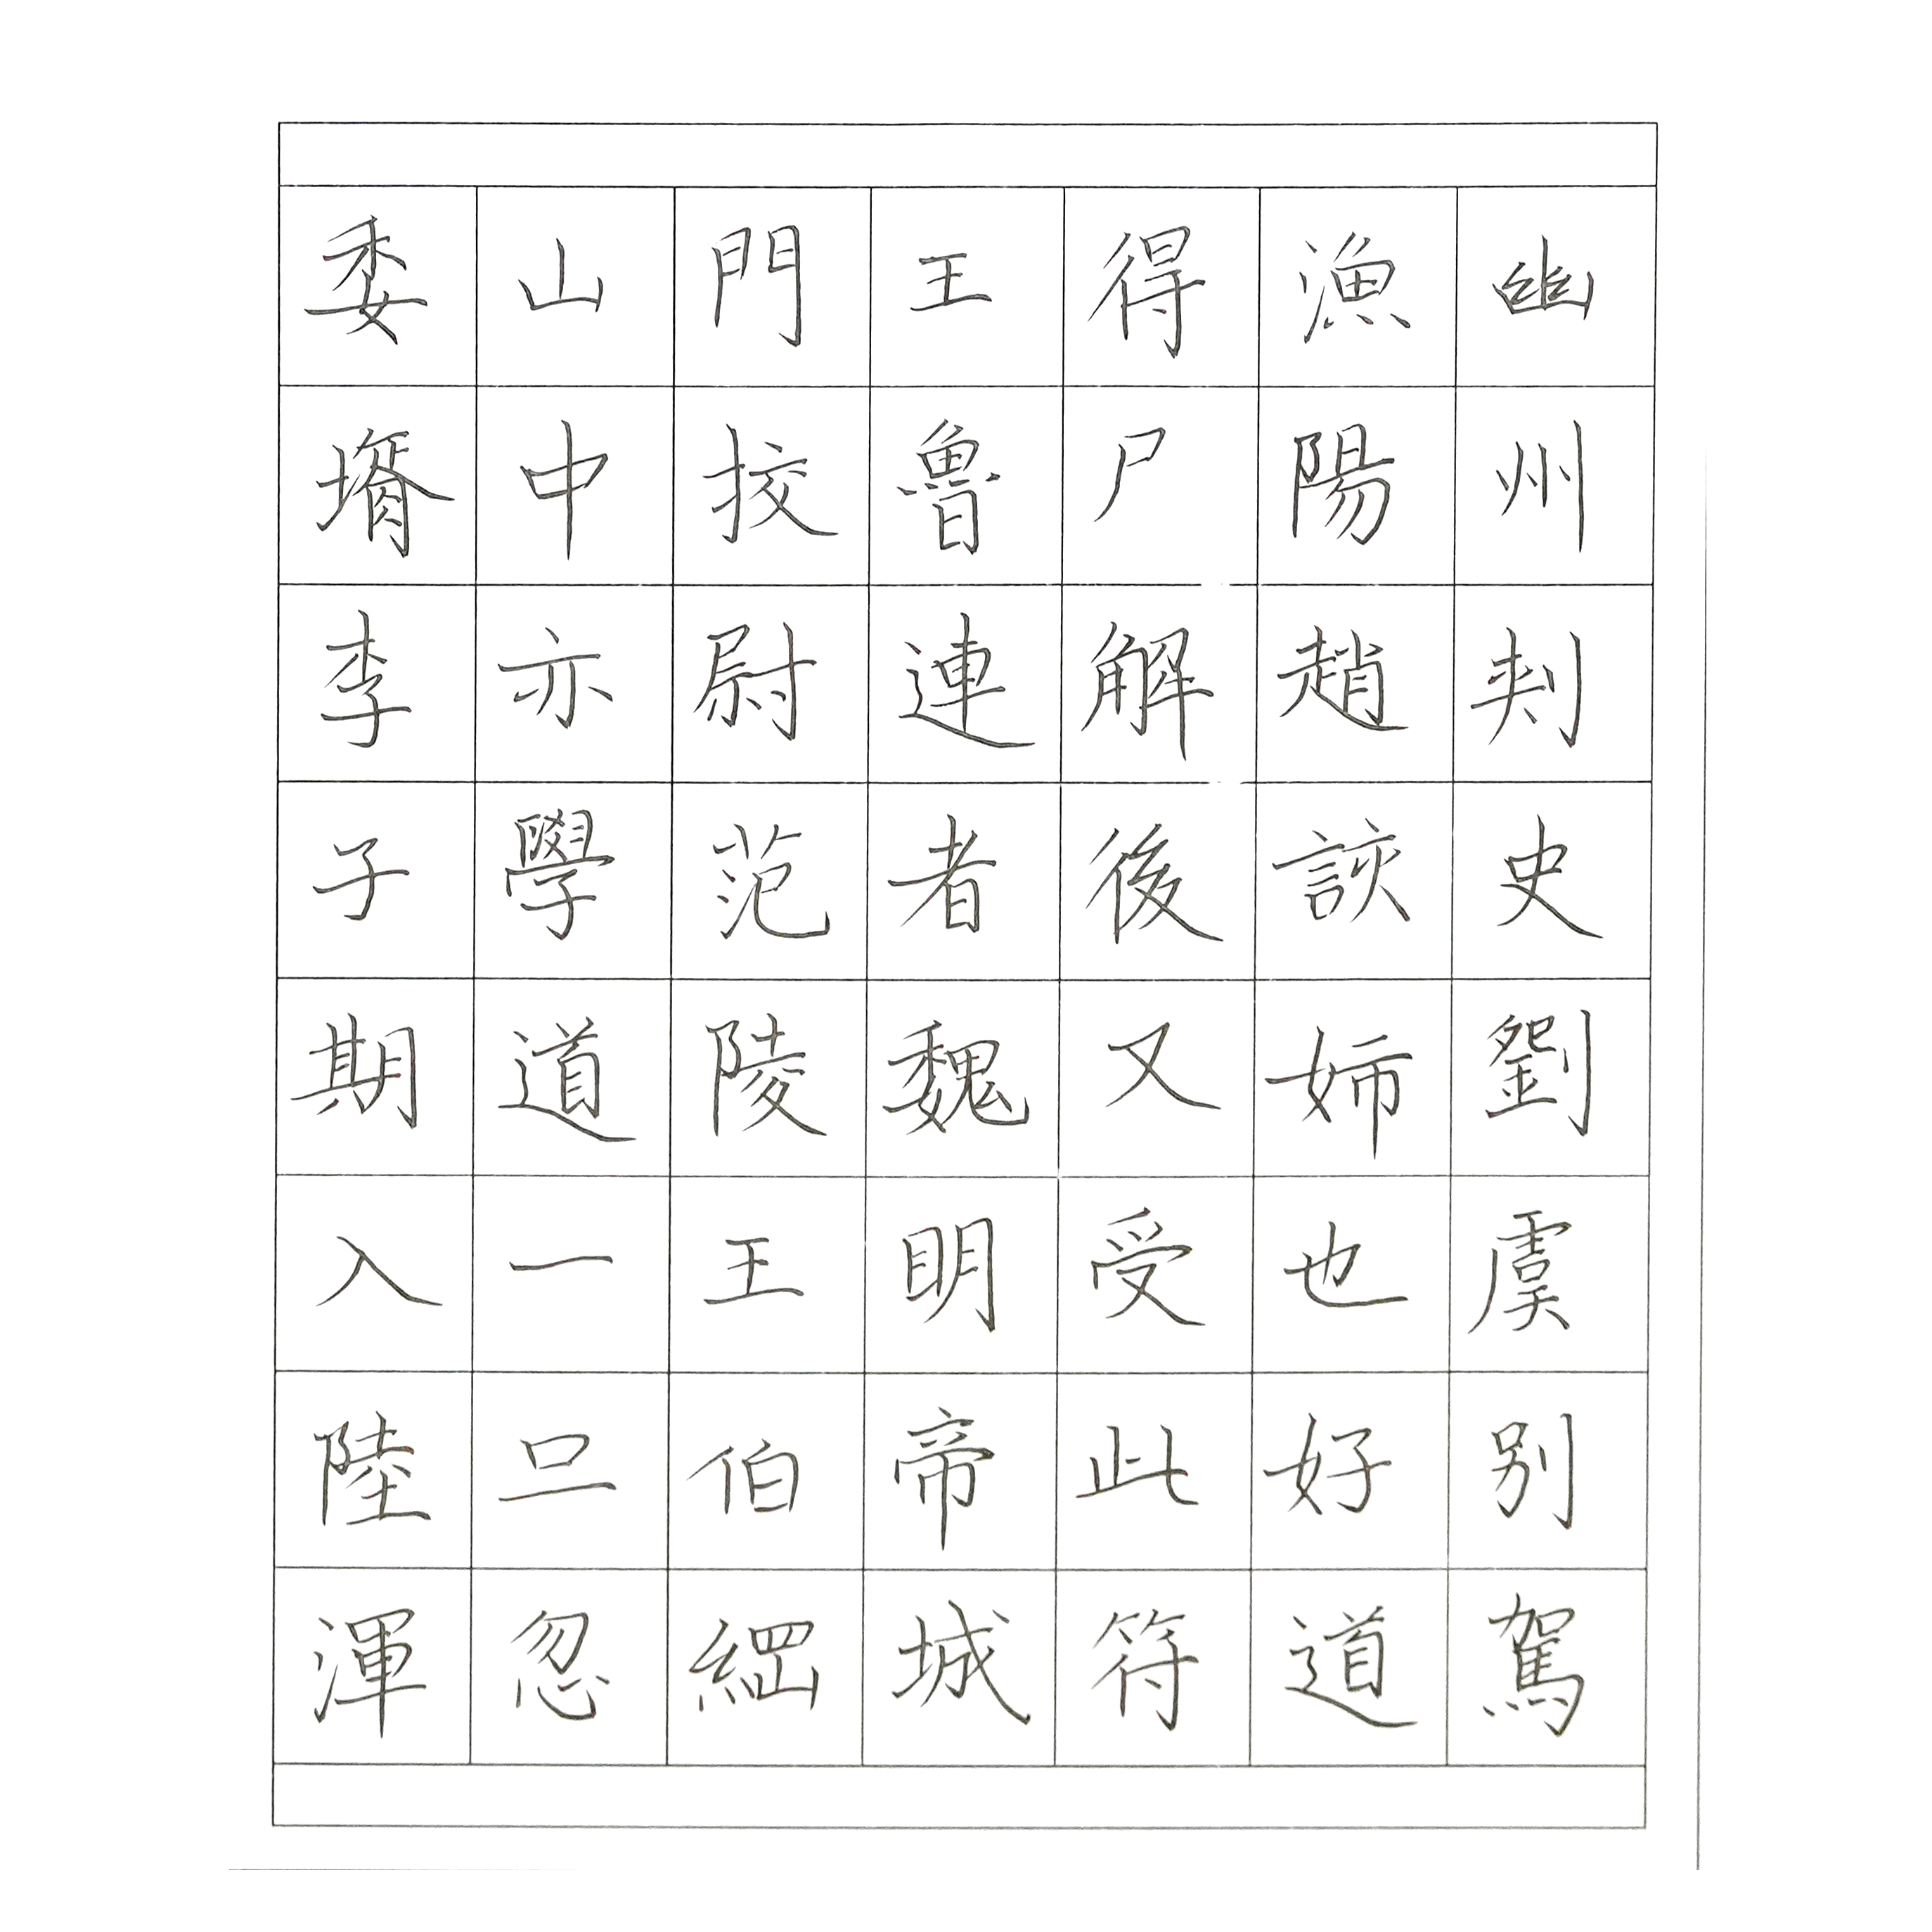 幽州刾史劉虞別駕
漁陽趙該姉也好道
得尸解後又受此符
王魯連者魏明帝城
門挍尉范陵王伯綱
山中亦學道一旦忽
委壻李子期入陸渾